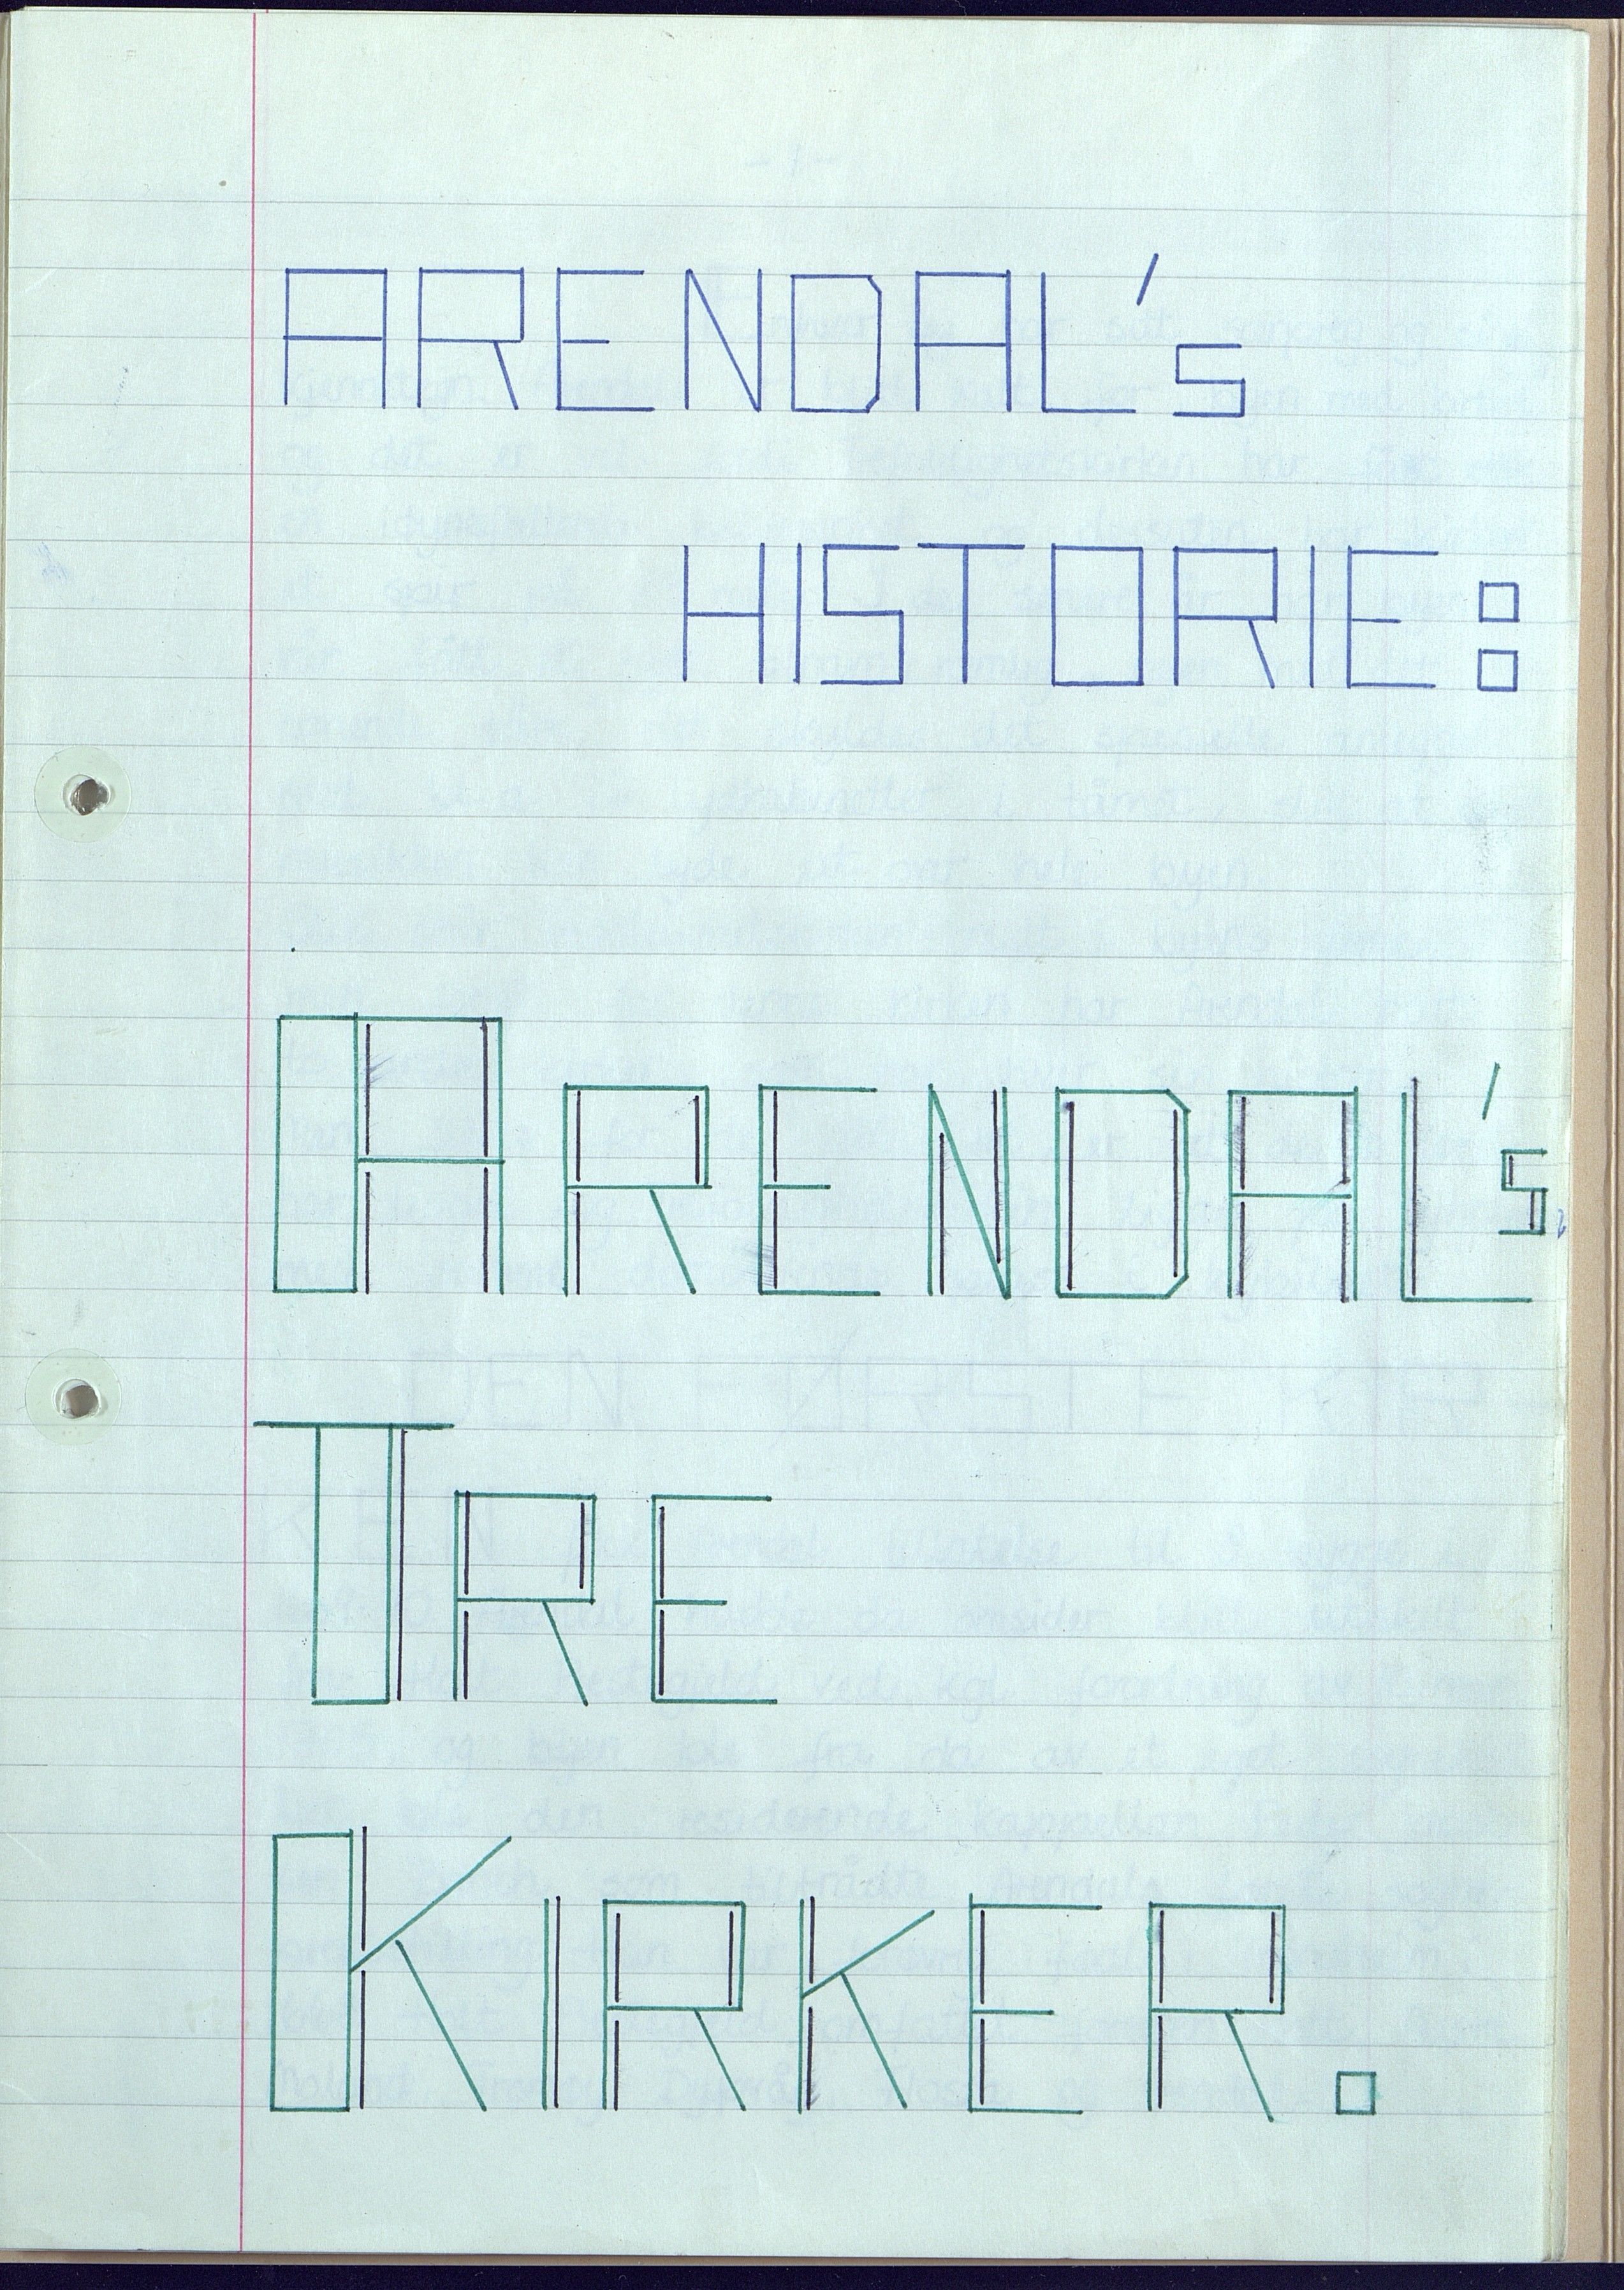 ARENDAL's
HISTORIE:
ARENDAL's
TRE
KIRKER.